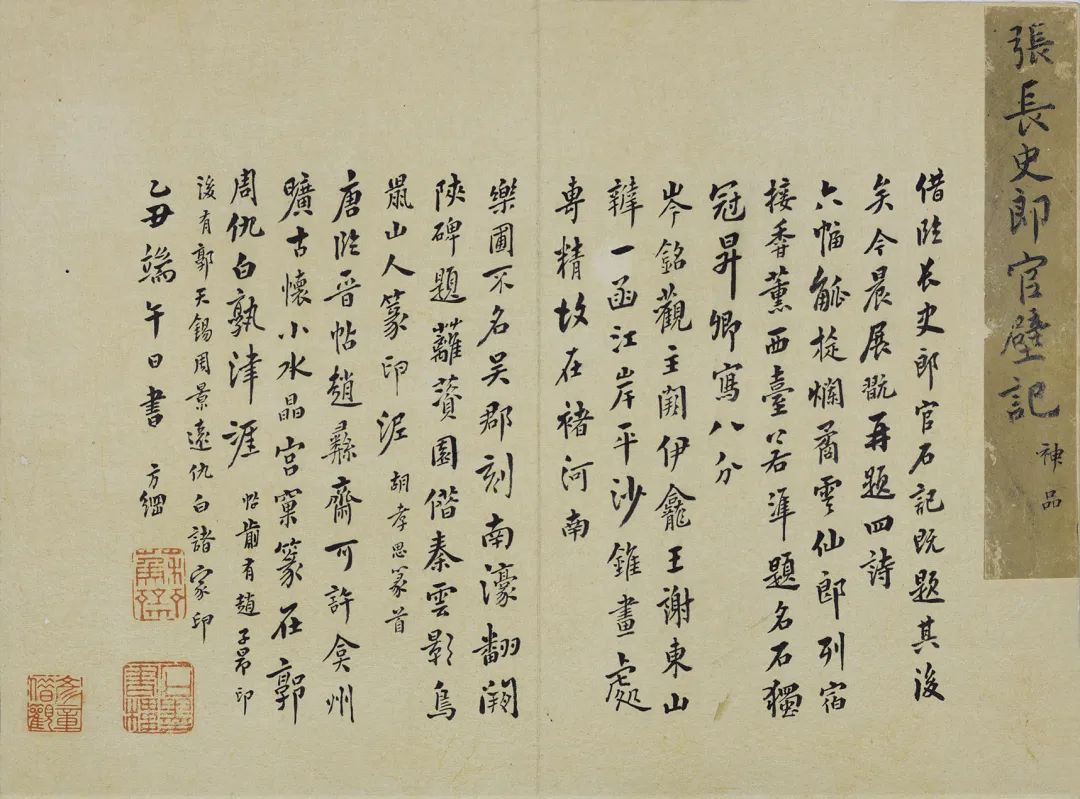 張長史郎官壁記
神品
借臨長史郎官石記既題其後
矣今晨展翫再題四詩
六幅觚棱爛矞雲仙郎列宿
接香薰西臺若準題名石獨
冠昇卿寫八分
岑銘觀主闕伊龕王謝東山
一函江岸平沙錐畫處
專精故在褚河南
樂圃不名吳郡刻南濠翻溯
陝碑題蘺薋園偕秦雲影鳥
鼠山人篆印泥 胡孝思篆首
唐臨晉帖趙彝齋可許弇州
曠古懷小水晶宮窠篆在郭
周仇白孰津涯 帖前有趙子昂印
後有郭天錫周景遠仇白諸家印
乙丑端午日書 方綱
石墨書樓